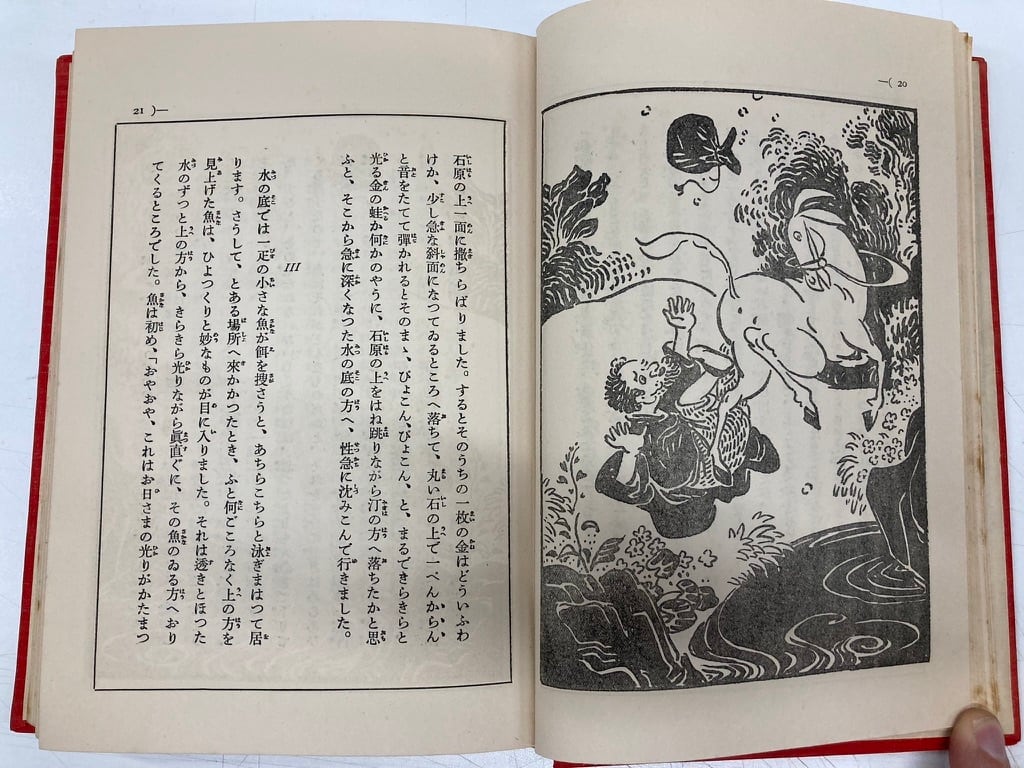 —( 20
21 )—
石原の上一面に撒ちらばりました。するとそのうちの一枚の金はどういふわ
けか、少し急な斜面になつてゐるところへ落ちて、丸い石の上で一ぺんからん
と音をたてて彈かれるとそのまゝ、ぴょこん、ぴょこん、と、まるできらきらと
光る金の蛙か何かのやうに、石原の上をはね跳りながら汀の方へ落ちたかと思
ふと、そこから急に深くなつた水の底の方へ、性急に沈みこんで行きました。
III
水の底では一疋の小さな魚が餌を捜さうと、あちらこちらと泳ぎまはつて居
ります。さうして、とある場所へ來かかつたとき、ふと何ごころなく上の方を
見上げた魚は、ひよつくりと妙なものが目に入りました。それは透きとほつた
水のずつと上の方から、きらきら光りながら眞直ぐに、その魚のゐる方へおり
てくるところでした。魚は初め、「おやおや、これはお日さまの光りがかたまつ